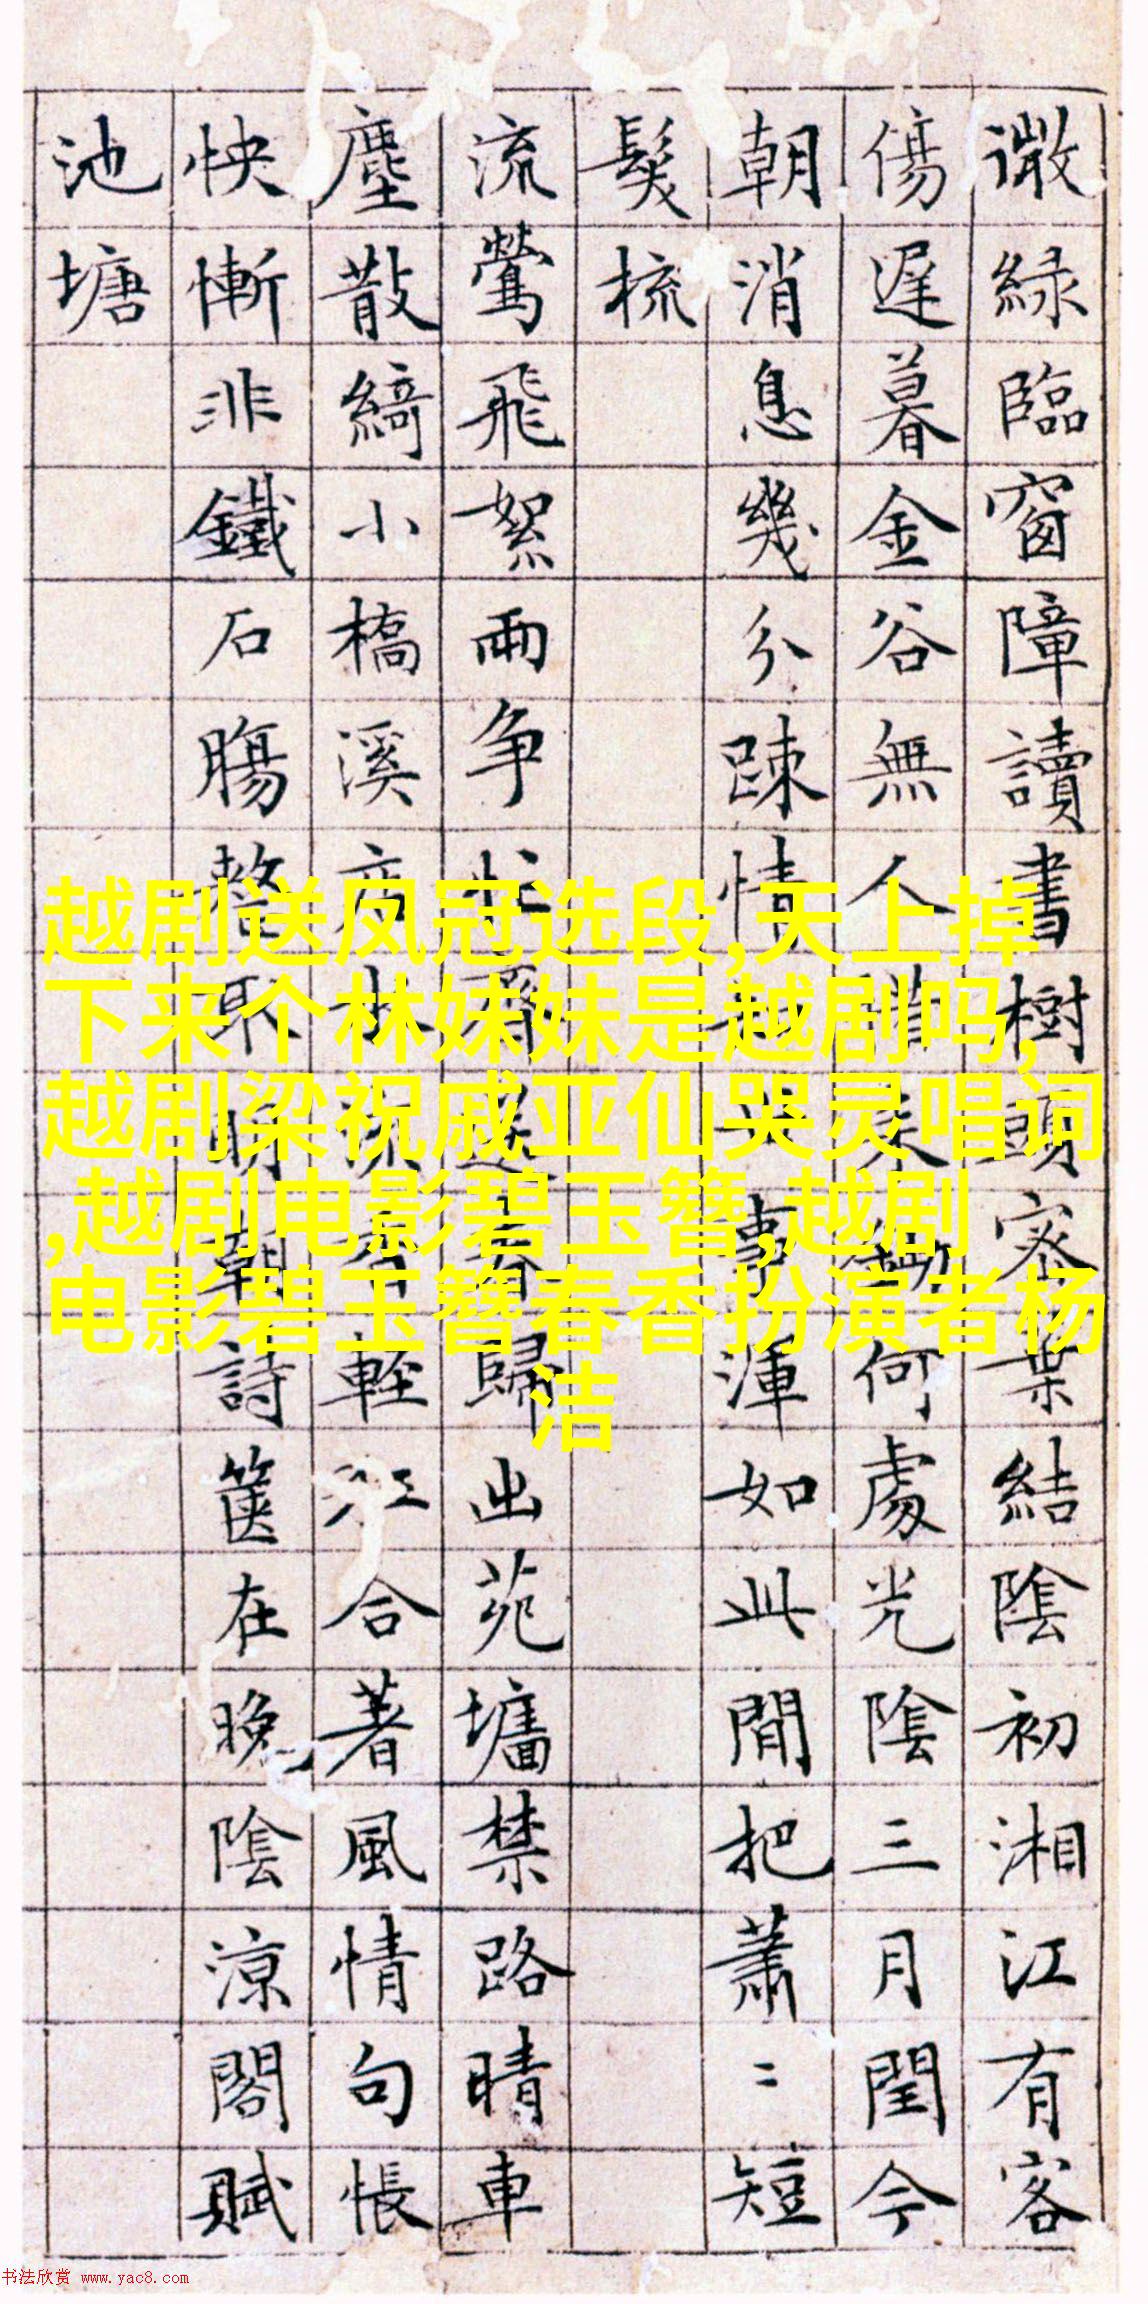 微綠臨窗障讀書樹頭密葉結陰初湘江有客
傷遲暮金谷無人惜未鋤何處光陰三月閏今
朝消息幾分踈情事渾如此閒把蕭〻短
髮梳
流鶯飛絮兩爭忙齊送春歸出苑墻禁路晴車
塵散綺小橋溪店水流香輕江合著風情句悵
怏慚非鐵石膓整取明朝詩篋在晚陰涼閣賦
池塘
越剧送凤冠选段,天上掉
下来个林妹妹是越剧吗,
越剧梁祝戚亚仙哭灵唱词
,越剧电影碧玉簪,越剧
电影碧玉簪春香扮演者杨
洁
书法欣赏 www.yac8.com